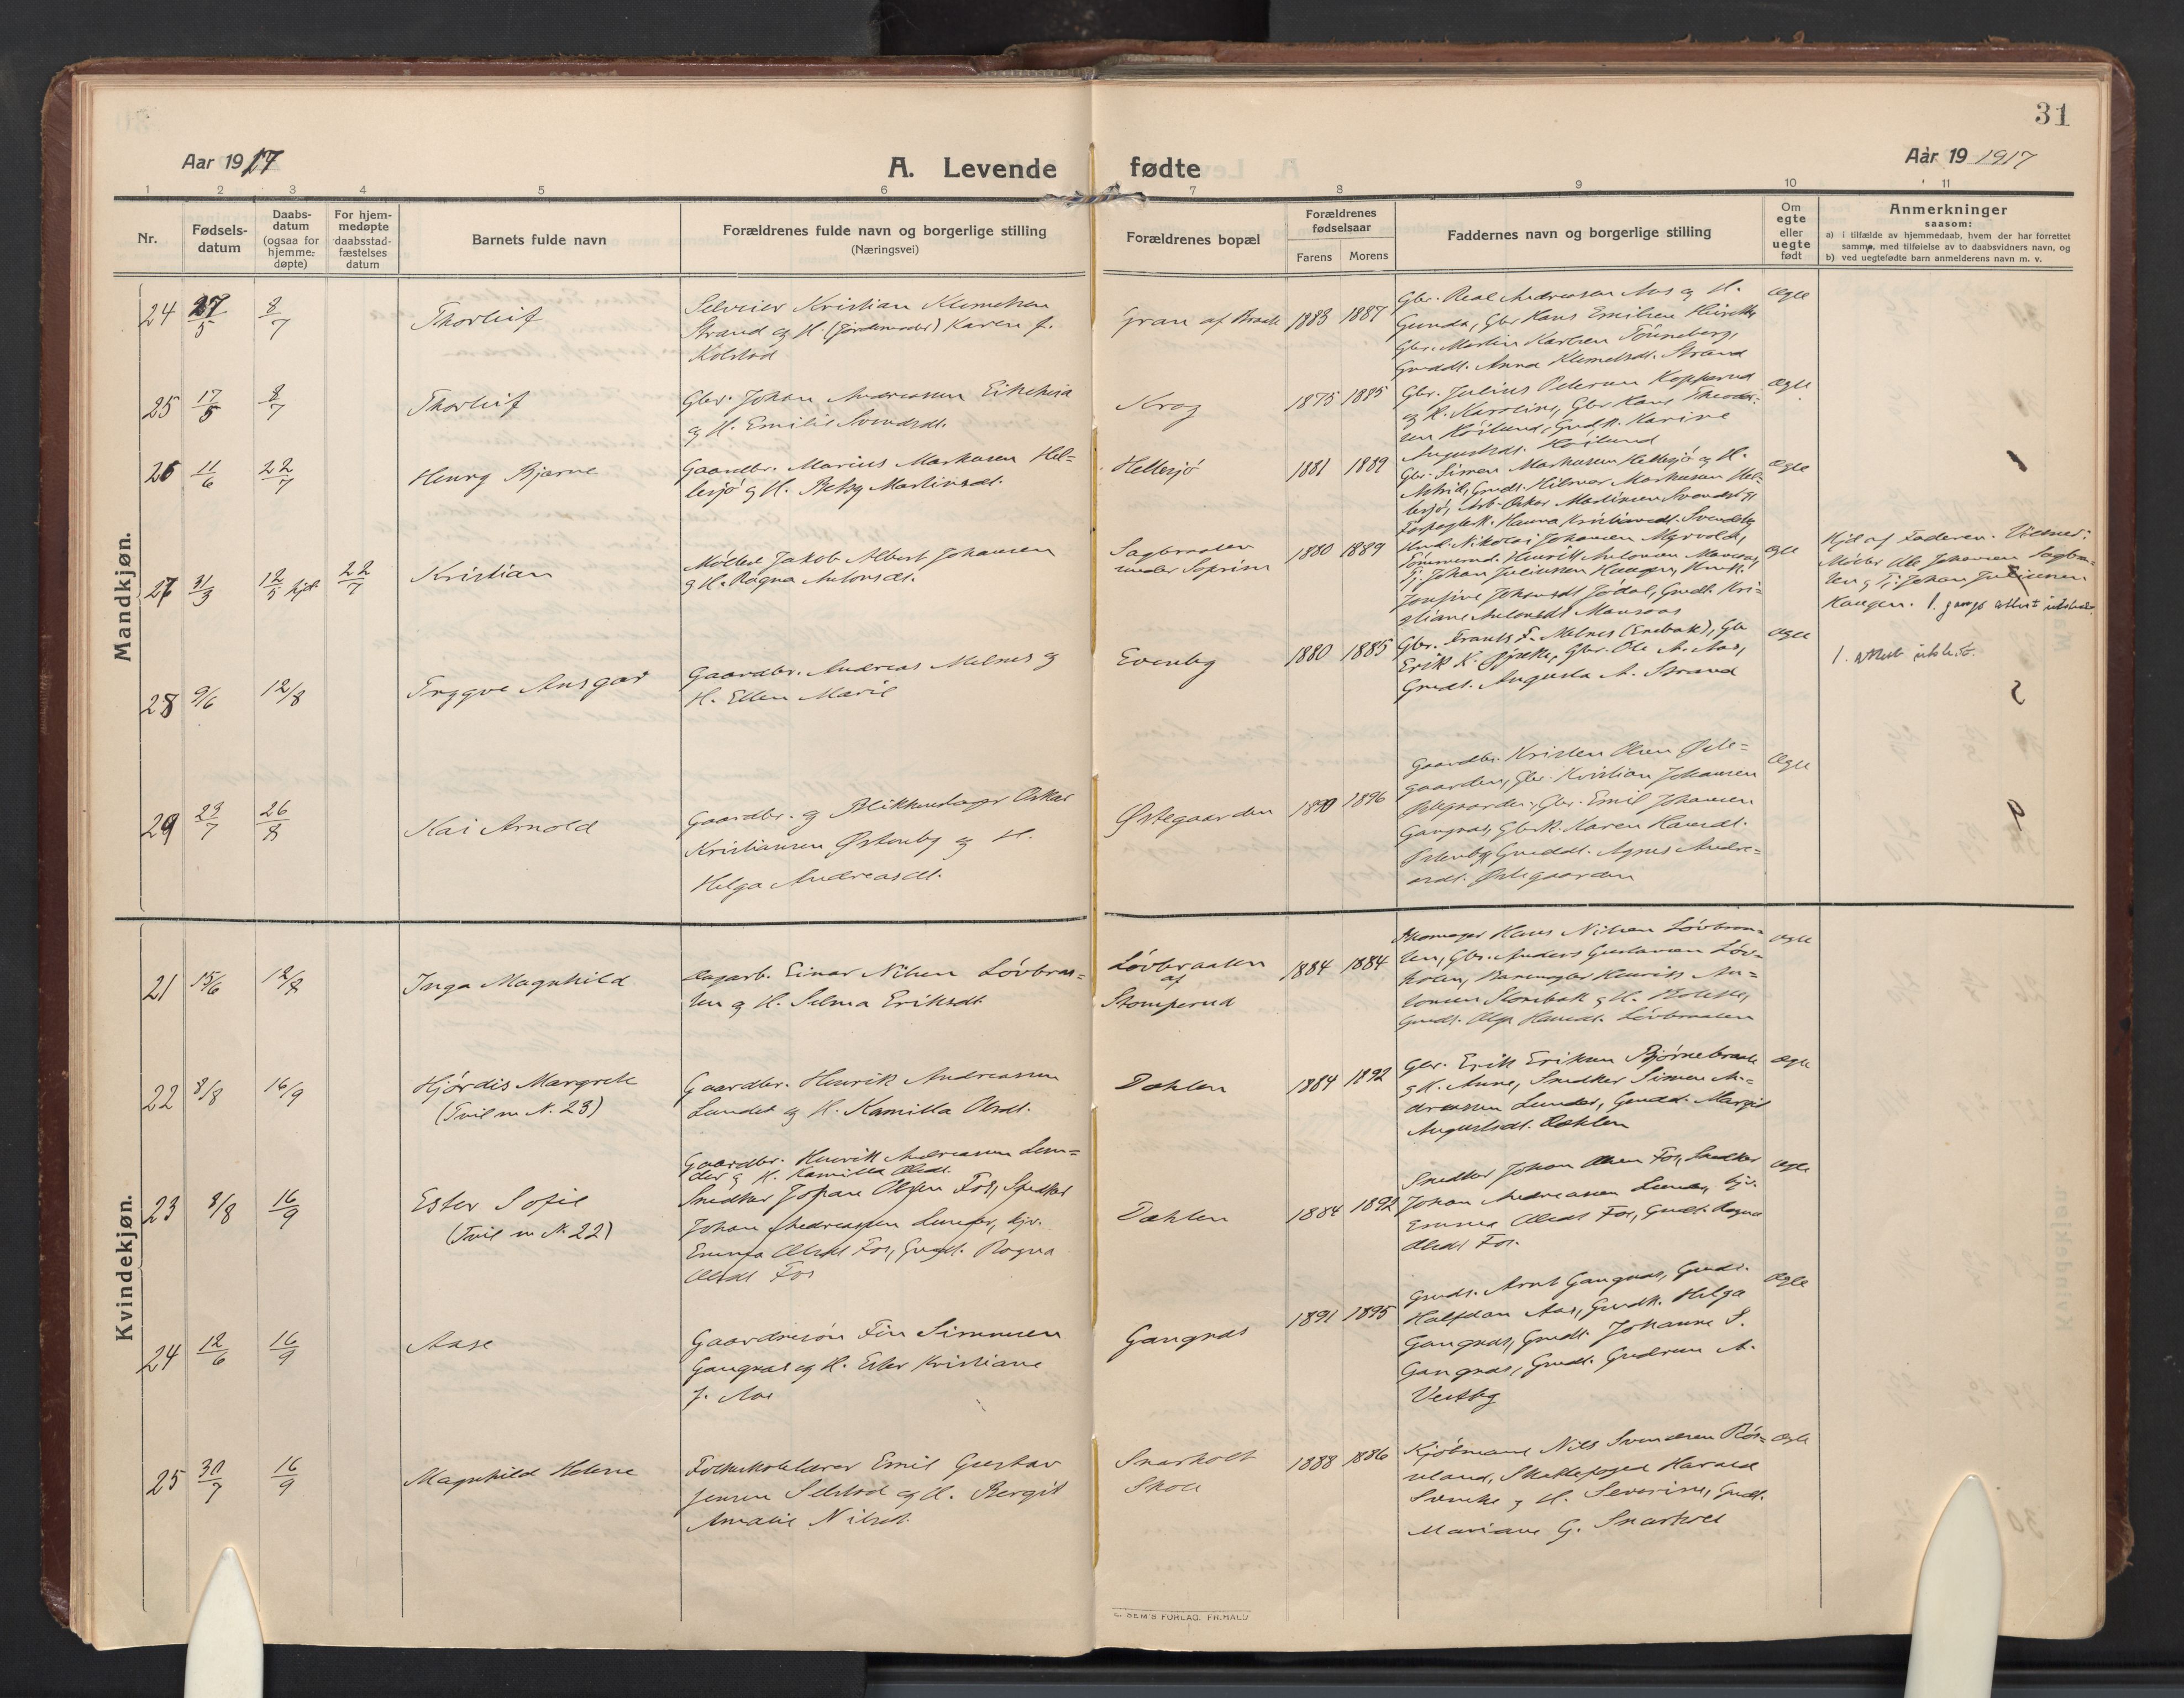 31
Aar 1917
A. Levende fødte
Aar 19 1917
1 2 3 4 5 6 7 8 9 10 11
Nr.
Fødsels-
datum
Daabs-
datum
(ogsaa for
hjemme-
døpte)
For hjem-
medøpte
daabsstad-
fæstelses
datum
Barnets fulde navn
Forældrenes fulde navn og borgerlige stilling
(Næringsvei)
Forældrenes bopæl
Forældrenes
fødselsaar
Farens Morens
Faddernes navn og borgerlige stilling
Om
egte
eller
uegte
født
Anmerkninger
saasom:
a) i tilfælde av hjemmedaab, hvem der har forrettet
samme, med tilføielse av to daabsvidners navn, og
b) ved uegtefødte barn anmelderens navn m. v.
Mandkjøn.
24 27/5 8/7 Thorleif
Selveier Kristian Klemetsen
Strand og H. (Jordemoder) Karen f.
Kolstad
Gran af Braate 1883 1887
Gbr. Real Andreassen Aas og H.
Gunda, Gbr Hans Emilsen
Gbr. Martin Karlsen Tønneberg,
Anna Klemetsdt. Strand
Ægte
25 17/5 8/7 Thorleif
Gbr. Johan Andreassen
og H. Emilie Svendsdt.
Krog 1875 1885
Gbr. Julius Petersen Kopperud
og H. Karoline, Gbr Karl Theodor-
sen Høilund, Karine
Augustsdt. Høilund
Ægte
26 11/6 22/7 Henry Bjarne
Gaardbr. Marius Markusen Hel-
lesjø og H. Betsy Martinsdt.
Hellesjø 1881 1889
Gbr. Simen Markusen Hellesjø og H.
Astrid, Hilmar Markusen Hel-
lesjø, Arb. Oskar Martinsen Svendsby
Hanna Kristiansdt. Svendsby
Ægte
27 31/3 12/5 hjd. 22/7 Kristian
Møller Jakob Albert Johansen
og H. Ragna Antonsdt.
Sagbraaten
under Soprim 1880 1889
Nikolai Johansen Myrvold,
Tømmermd. Henrik Antonsen Mansaas,
Tj. Johan Juliussen Haugen,
Josefine Johansdt Jødal, Kri-
stiane Antonsdt Mansaas
Ægte
Hjd af Faderen. Vidner:
Møller Ole Johansen Sagbraa-
ten og Tj. Johan Juliussen
Haugen. 1. gangs attest utstedt.
28 9/6 12/8 Tryggve Ansgar
Gaardbr. Andreas Melnes og
H. Ellen Marie
Evenby 1880 1885
Gbr. Frants F. Melnes (Enebak), Gbr
Erik K. Gjølke, Gbr. Ole A. Aas,
Augusta A. Strand
Ægte
1. attest utstedt.
29 29/7 26/8 Kai Arnold
Gaardbr. og Blikkenslager Oskar
Kristiansen Østenby og H.
Helga Andreasdt.
Østegaarden 1890 1896
Gaardbr. Kristen Olsen Øste-
gaarden, Gbr. Kristian Johansen
Østegaarden, Gbr. Emil Johansen
Gangnæs, Karen Hansdt.
Østenby, Agnes Andre-
asdt. Østegaarden
Ægte
Kvindekjøn.
21 15/6 12/8 Inga Magnhild
Dagarb. Einar Nilsen Løvbraa-
ten og H. Selma Eriksdt
Løvbraaten
af
Stomperud 1884 1884
Skomager Hans Nilsen Løvbraa-
ten, Gbr. Anders Gustavsen Løv-
holen, Henrik An-
tonsen og H.
Olga Hansdt. Løvbraaten
Ægte
22 8/8 16/9 Hjørdis Margrete
(Tvil m N. 23)
Gaardbr. Henrik Andreassen
Lunder og H. Kamilla Olsdt.
Dahlen 1884 1892
Gbr. Erik Eriksen Bjørnebraate
og H. Anne, Snedker Simen An-
dreassen Lunder, Margit
Augustsdt. Dahlen
Ægte
23 8/8 16/9 Ester Sofie
(Tvil m N. 22)
Gaardbr. Henrik Andreassen Lun-
der og H. Kamilla Olsdt.
Snedker Johan Olsen Fos, Snedker
Johan Andreassen Lunder, hjv.
Emma Olsdt Fos, Ragna
Olsdt Fos
Dahlen 1884 1892
Snedker Johan Olsen Fos, Snedker
Johan Andreassen Lunder, hjv.
Emma Olsdt Fos, Ragna
Olsdt Fos.
Ægte
24 12/6 16/9 Aase
Gaardmsøn Fin Simensen
Gangnæs og H. Ester Kristiane
f. Aas
Gangnæs 1891 1895
Arnt Gangnæs,
Halfdan Aas, Helga
Gangnæs, Johanne S.
Gangnæs, Gudrun A.
Vestby
Ægte
25 30/7 16/9 Magnhild Helene
Folkeskolelærer Emil Gustav
Jensen Selstad og H. Bergit
Amalie Nilsdt.
Snarholt
Skole 1888 1886
Kjøbmand Nils Svendsen Røs-
nland, Skattefoged Harald
og H. Severine,
Mariane G. Snarholt
Ægte
E. SEM'S FORLAG. FR.HALD